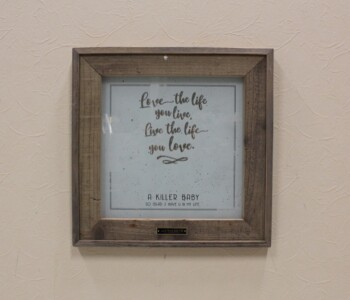 Love the life
you live.
Live the life
you love.
A KILLER BABY